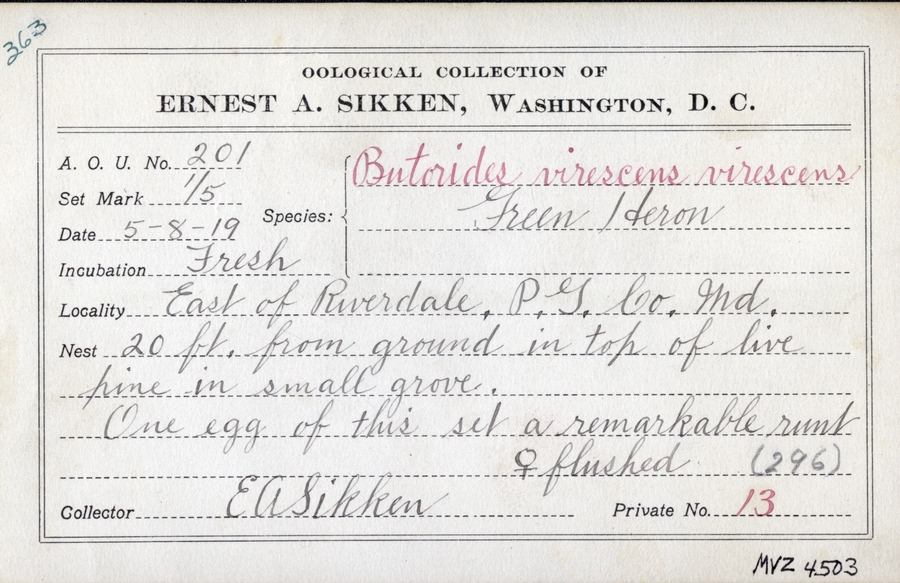 363
OOLOGICAL COLLECTION OF
ERNEST A. SIKKEN, WASHINGTON, D. C.
A. O. U. No. 201
Set Mark 1/5
Date 5-8-19
Incubation Fresh
Species: Butorides virescens virescens
Green Heron
Locality East of Riverdale, P.G. Co. Md.
Nest 20 ft. from ground in top of live
pine in small grove.
One egg of this set a remarkable runt
♀ flushed (296)
Collector EASikken Private No. 13
MVZ 4503